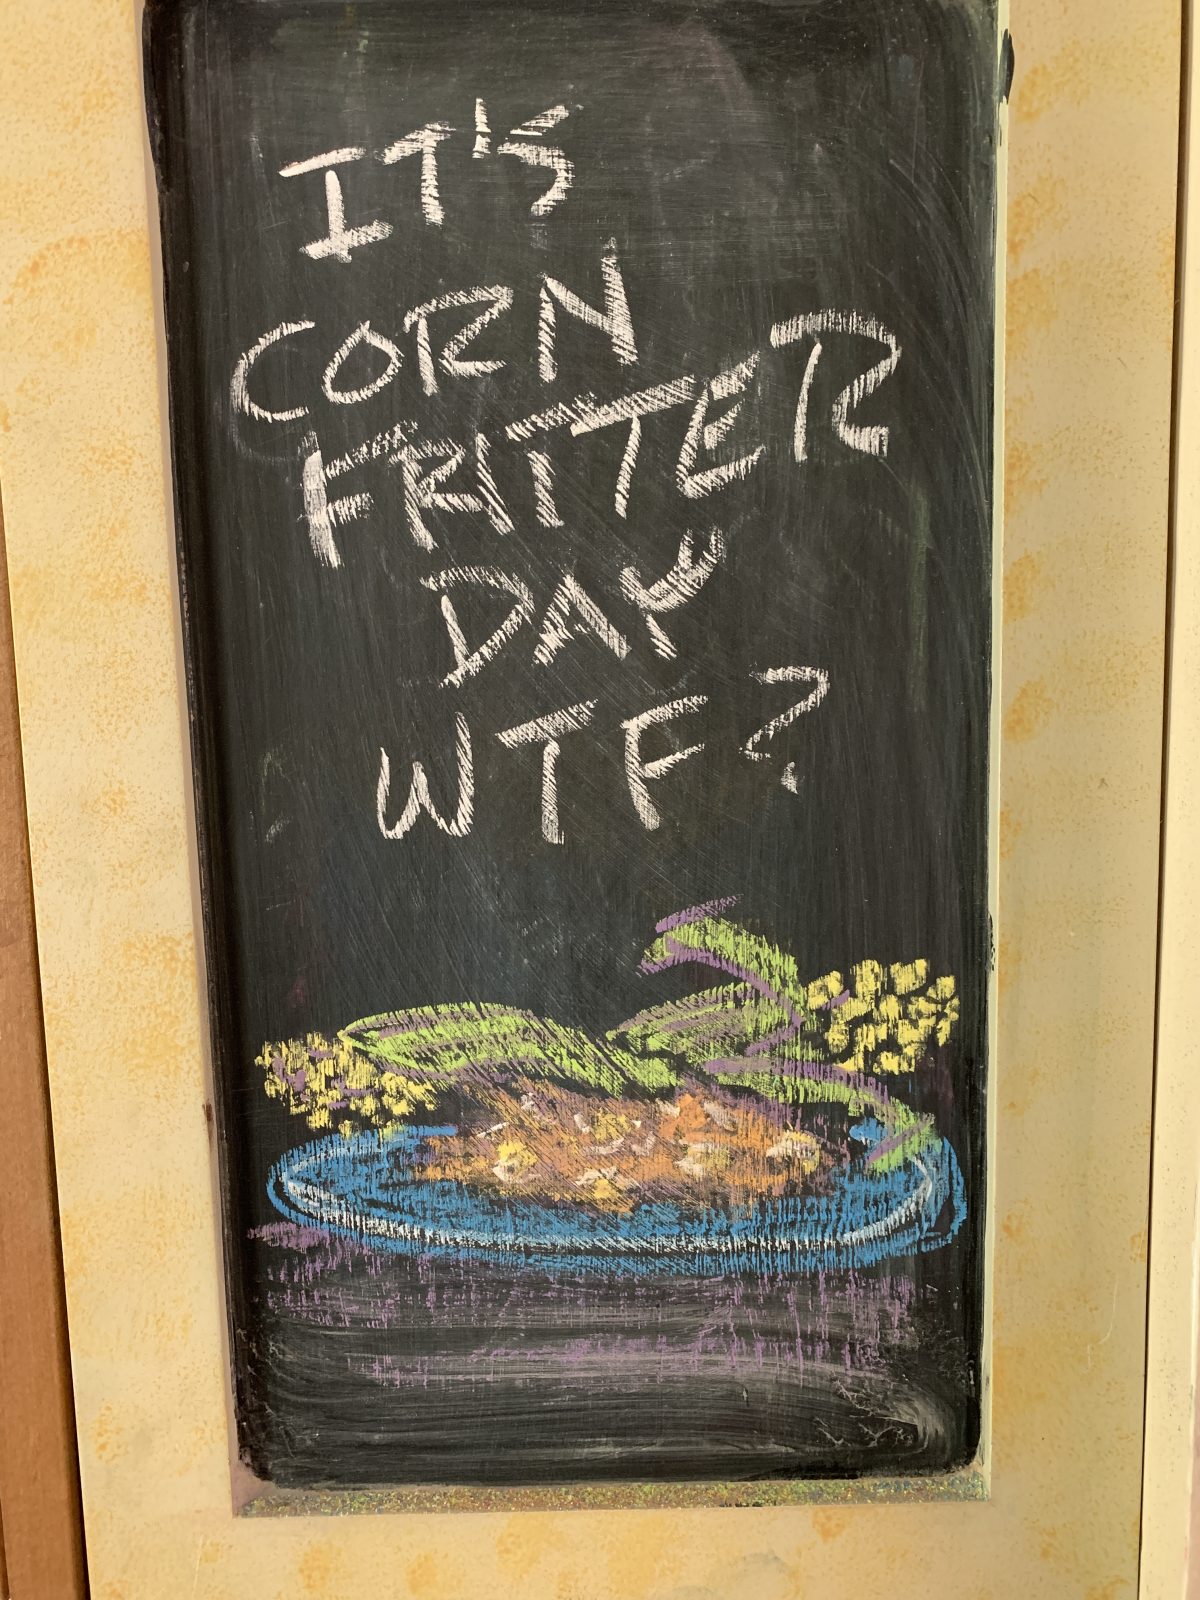 IT'S
CORN
FRITTER
DAY
WTF?